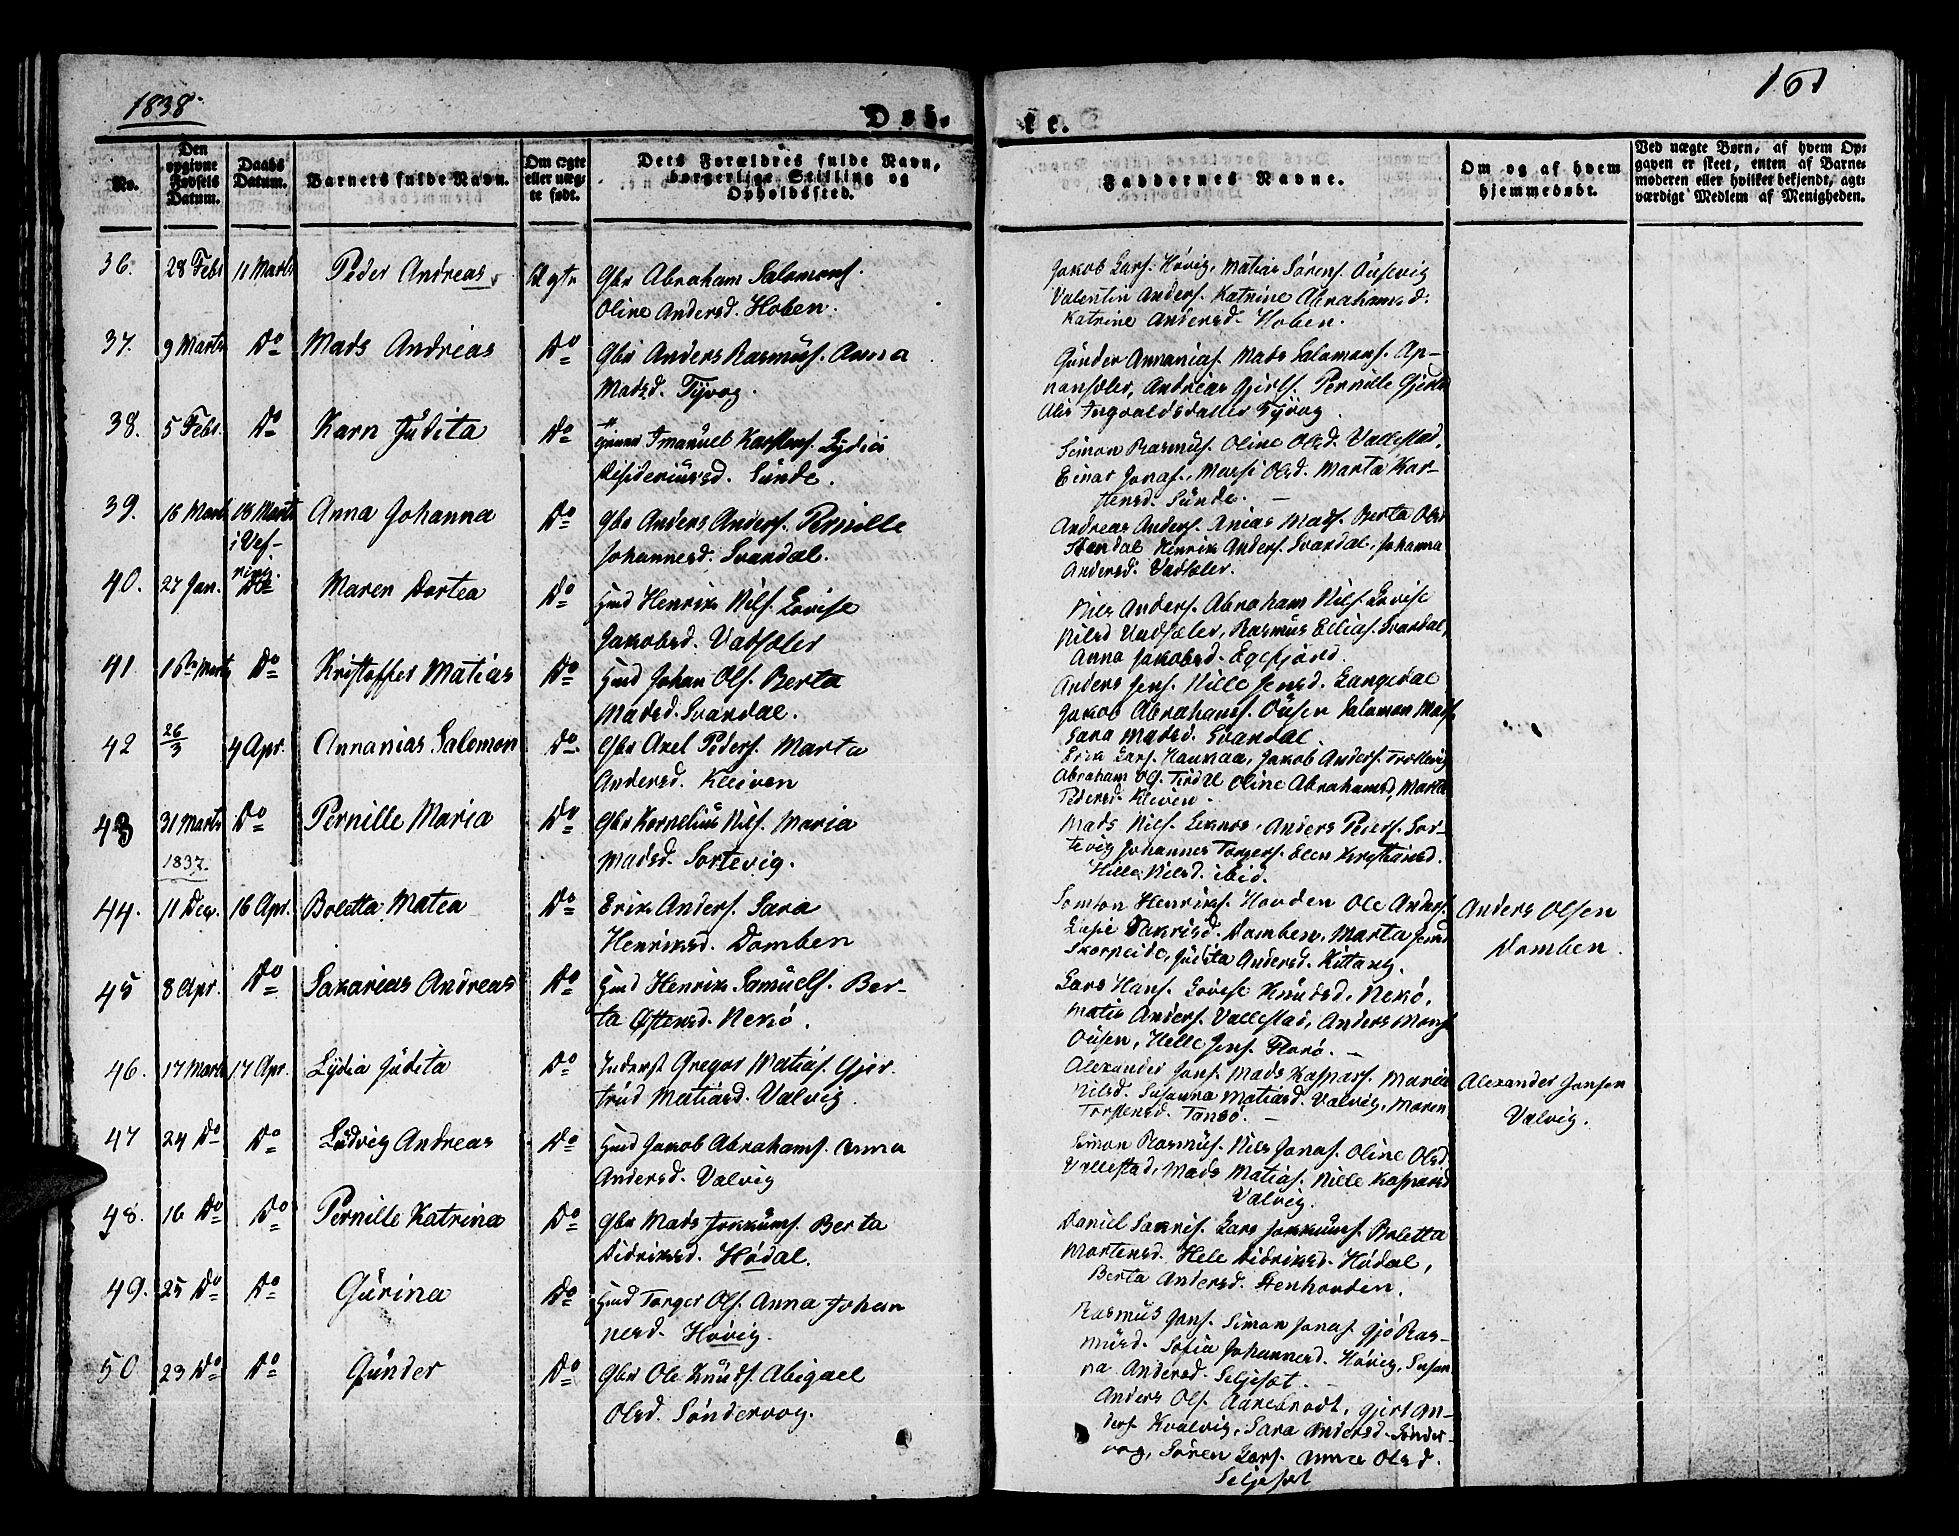 1838.
Døb-
te.
161
No.
Den opgivne Fødsels Datum.
Daabs Datum.
Barnets fulde Navn.
Om ægte eller uægte født.
Dets Forældres fulde Navn, borgerlige Stilling og Opholdssted.
Faddernes Navne.
Om og af hvem hjemmedøbt.
Ved uægte Børn, af hvem Op-
gaven er skeet, enten af Barne-
moderen eller hvilket bekjendt, agt-
værdigt Medlem af Menigheden.
36. 28 Febr 11 Marts Peder Andreas Ægte Gbr Abraham Salomons.
Oline Andersd. Hoben.
Jakob Lars. Høvig, Matias Sørens. Ousevig
Valentin Anders. Katrine Abrahamsd.
Katrine Andersd. Hoben.
37. 9 Marts Do Mads Andreas Do Gbr Anders Rasmus. Anna
Madsd. Tyvog.
Gunder Annanias. Mads Salomons. Ap-
nansæler, Andreas Gjerts. Pernille
Ingvaldsdatter Tyvog.
38. 5 Febr. Do Karn Judita Do Imanuel Karstens. Lydia
Desideriusd. Sunde.
Simon Rasmus. Oline Olsd. Vallestad,
Einar Jonas. Massi Olsd. Marta Kar-
stensd. Sunde.
39. 16 Marts 18 Marts Anna Johanna Do Gbr Anders Anders. Pernille
i Vef-
ring.
Johannesd. Svardal.
Andreas Anders. Anias Mads. Berta Olsd
Stendal Henrik Anders. Svardal, Johanna
Andersd. Vadsæler.
40. 27 Jan. Do Maren Dortea Do Hmd Henrik Nils. Lovise
Jakobsd. Vadsæler
Nils Anders. Abraham Nils. Lovise
Nilsd Vadsæler, Rasmus Elias. Svardal,
Anna Jakobsd. Egefjord.
41 Marts Do Kristoffer Matias Do Hmd Johan Ols. Berta
Madsd. Svardal.
Anders Jens. Nille Jensd. Langedal
Jakob Abrahams. Ousen Salomon Mads.
Sara Madsd. Svardal.
42 26/3 4 Apr. Annanias Salomon Do Gbr Axel Peders. Marta
Andersd. Kleiven
Erik Lars. Haukaa, Jakob Anders. Trollevig
Abraham Ols. Tindal Oline Abrahamsd, Marta
Pedersd. Kleven.
43 31 Marts Do Pernille Maria Do Gbr Kornelius Nils. Maria
Madsd. Sortevig.
Mads Nils. Leknes, Anders Peders. Sor-
tevig Johannes Torgers. Elen Kristiansd.
Hille Nilsd. ibid.
1837.
44. 11 Dec. 16 Apr. Boletta Matea Do Erik Anders. Sara
Henriksd. Domben
Samson Henriks. Hovden Ole Anders.
Lisie Sakrisd. Domben, Marta Jensd
Skorpeide, Judita Andersd. Kittang.
Anders Olsen
Domben.
45 8 Apr. Do Sakarias Andreas Do Hmd Henrik Samuels. Ber-
ta Østensd. Nekø.
Lars Hans. Lovise Knudsd. Nekø,
Matis Anders. Vallestad, Anders Mons.
Ousen, Helle Jens. Florø.
46. 17 Marts 17 Apr. Lydia Judita Do Inderst Gregor Matias. Gjer-
trud Matiasd. Valvig.
Alexander Jans. Mads Kaspars. Maria
Nilsd. Susanna Matiasd. Valvig. Maren
Torstensd. Tansø.
Alexander Jansen
Valvig.
47 24 Do Do Ludvig Andreas Do Hmd Jakob Abrahams. Anna
Andersd. Valvig
Simon Rasmus. Nils Jonas. Oline Olsd
Vallestad, Mads Matias. Nille Kasparsd
Valvig.
48. 16 Do Do Pernille Katrina Do Gbr Mads Jokkums. Berta
Didriksd. Hødal.
Daniel Sakris. Lars Jokkums. Boletta
Mortensd. Hele Didriksd. Hødal,
Berta Andersd. Stenhovden.
49. 25 Do Do Gurina Do Hmd Torger Ols. Anna Johan
nesd. Høvig.
Rasmus Jans. Simon Jonas. Gjø Ras-
musd. Sofia Johannesd. Høvig, Susan
na Andersd. Seljesæt.
50 23 Do Do Gunder Do Gbr Ole Knuds. Abigael
Olsd. Søndervog.
Anders Ols. Aarebrodt, Gjert An-
ders. Kvalvig, Sara Andersd. Sønder-
vog, Søren Lars. Anna Olsd.
Seljeset